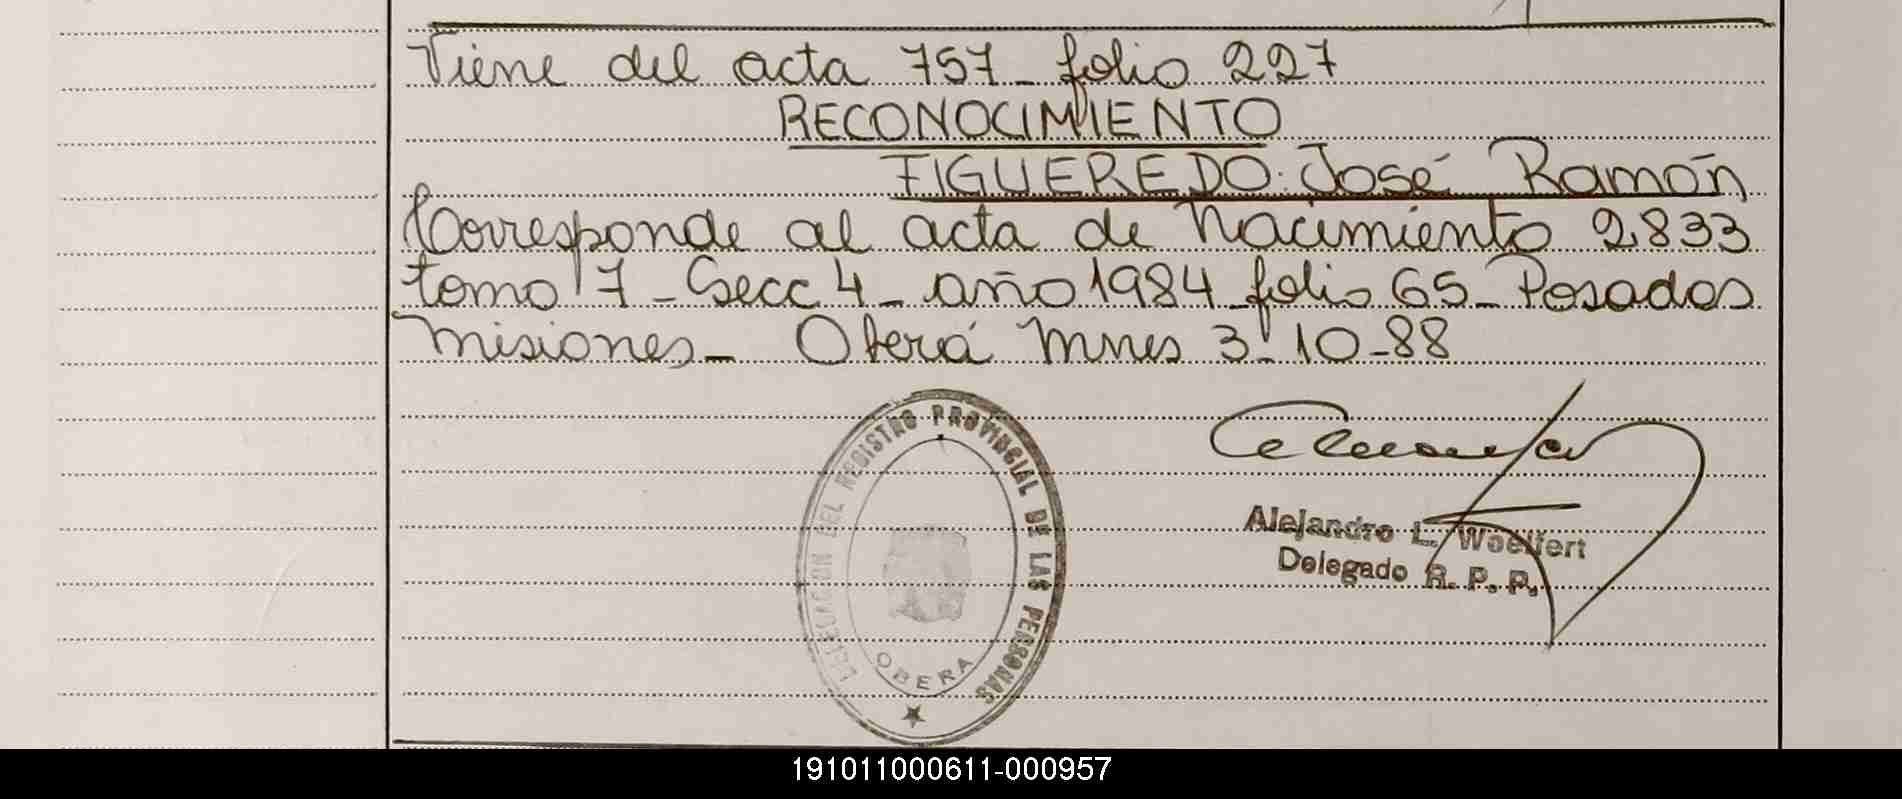 Viene del acta 757 - folio 227
RECONOCIMIENTO
FIGUEREDO: José Ramón
Corresponde al acta de Nacimiento 2833
tomo 7 - Secc 4 - año 1984 folio 65 - Posadas
Misiones - Oberá Mnes 3-10-88
DELEGACION DEL REGISTRO PROVINCIAL DE LAS PERSONAS
OBERA
Alejandro L. Woelfert
Delegado R. P. P.
191011000611-000957